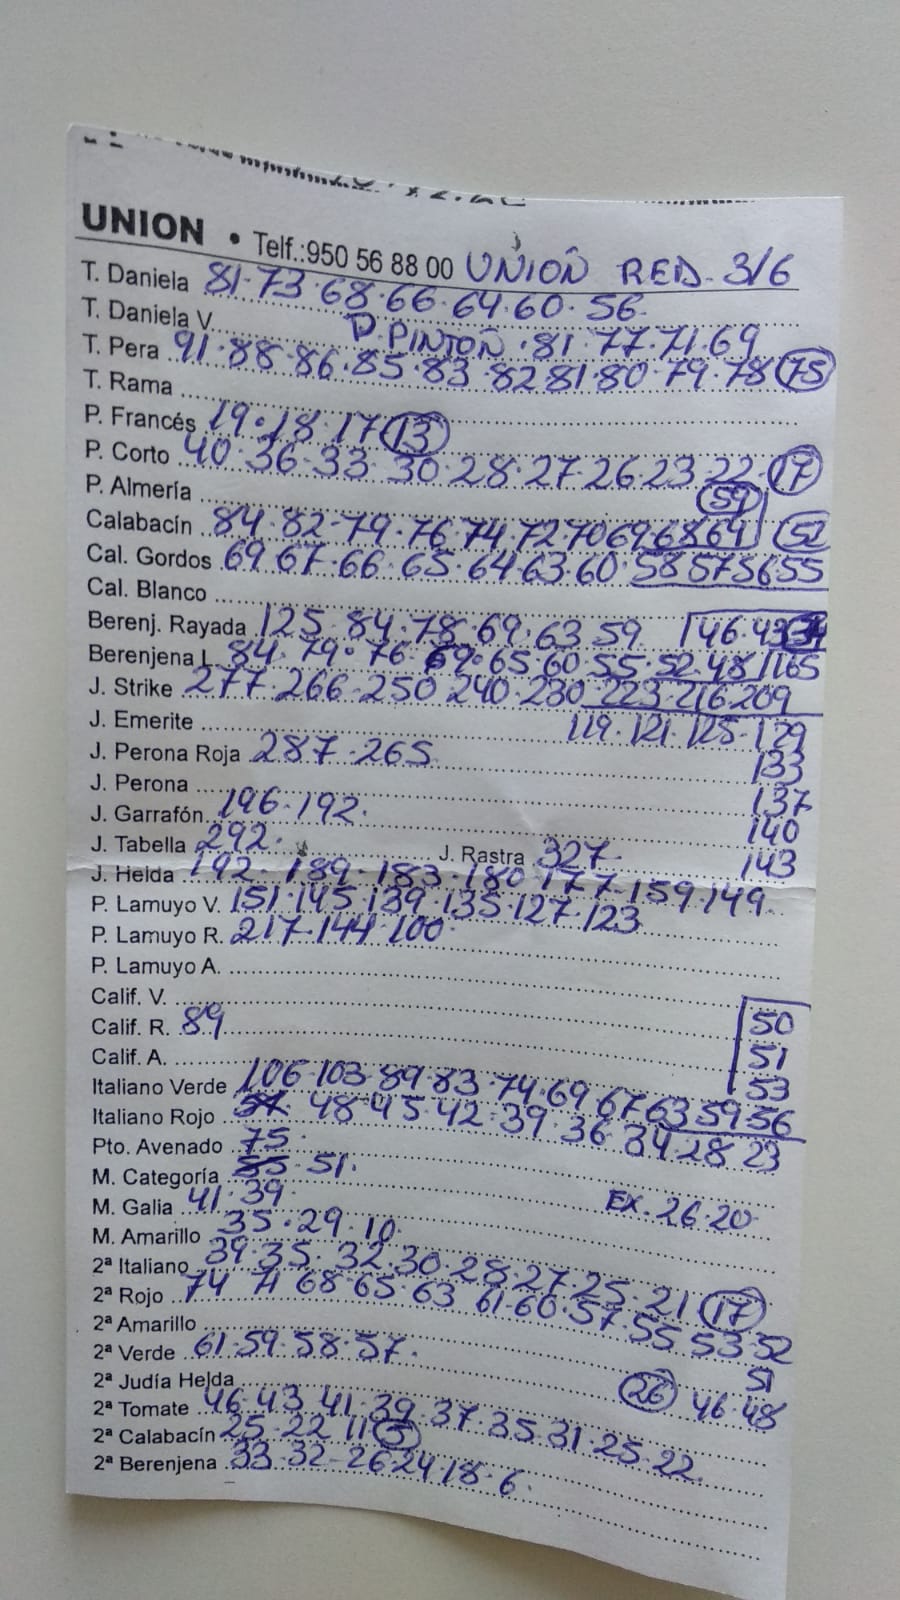 UNION • Telf.:950 56 88 00 UNIOÑ RED. 3/6
T. Daniela 81·73·68·66·64·60·56
T. Daniela V. P. PINTOÑ ·81·77·71·69
T. Pera 91·88·86·85·83·82 81·80·79·78 75
T. Rama
P. Francés 19·18·17 13
P. Corto 40·36·33·30·28·27·26·23·22·17
P. Almería 59
Calabacín 84·82·79·76·74·72 70 69 68 64 52
Cal. Gordos 69 67·66·65·64 63·60·58 57 56 55
Cal. Blanco
Berenj. Rayada 125·84·78·69·63 59 46·43
Berenjena L 84·79·76·69·65 60·55·52·48 165
J. Strike 277·266·250 240·230·223·216·209
J. Emerite 119·121·125·129
133
J. Perona Roja 287·265
J. Perona 137
J. Garrafón 196·192· 140
J. Tabella 292· J. Rastra 327 143
J. Helda 192·189·183·180·177·159·149
P. Lamuyo V. 151·145·139·135·127·123
P. Lamuyo R. 217·144·100
P. Lamuyo A.
Calif. V. 50
Calif. R. 89 51
Calif. A. 53
Italiano Verde 106·103·89·83·74·69·67 63 59 56
Italiano Rojo 48·45·42·39·36·34·28 23
Pto. Avenado 75
M. Categoría 55 51·
M. Galia 41·39 EX. 26·20
M. Amarillo 35·29·10
2ª Italiano 39·35·32·30·28·27·25·21 17
2ª Rojo 74 71 68·65·63 61·60·57·55 53·52
51
2ª Amarillo
2ª Verde 61·59·58·57·
2ª Judía Helda 26 46·48
2ª Tomate 46·43 41·39·37·35·31·25·22
2ª Calabacín 25·22 11 5
2ª Berenjena 33·32·26 24·18·6